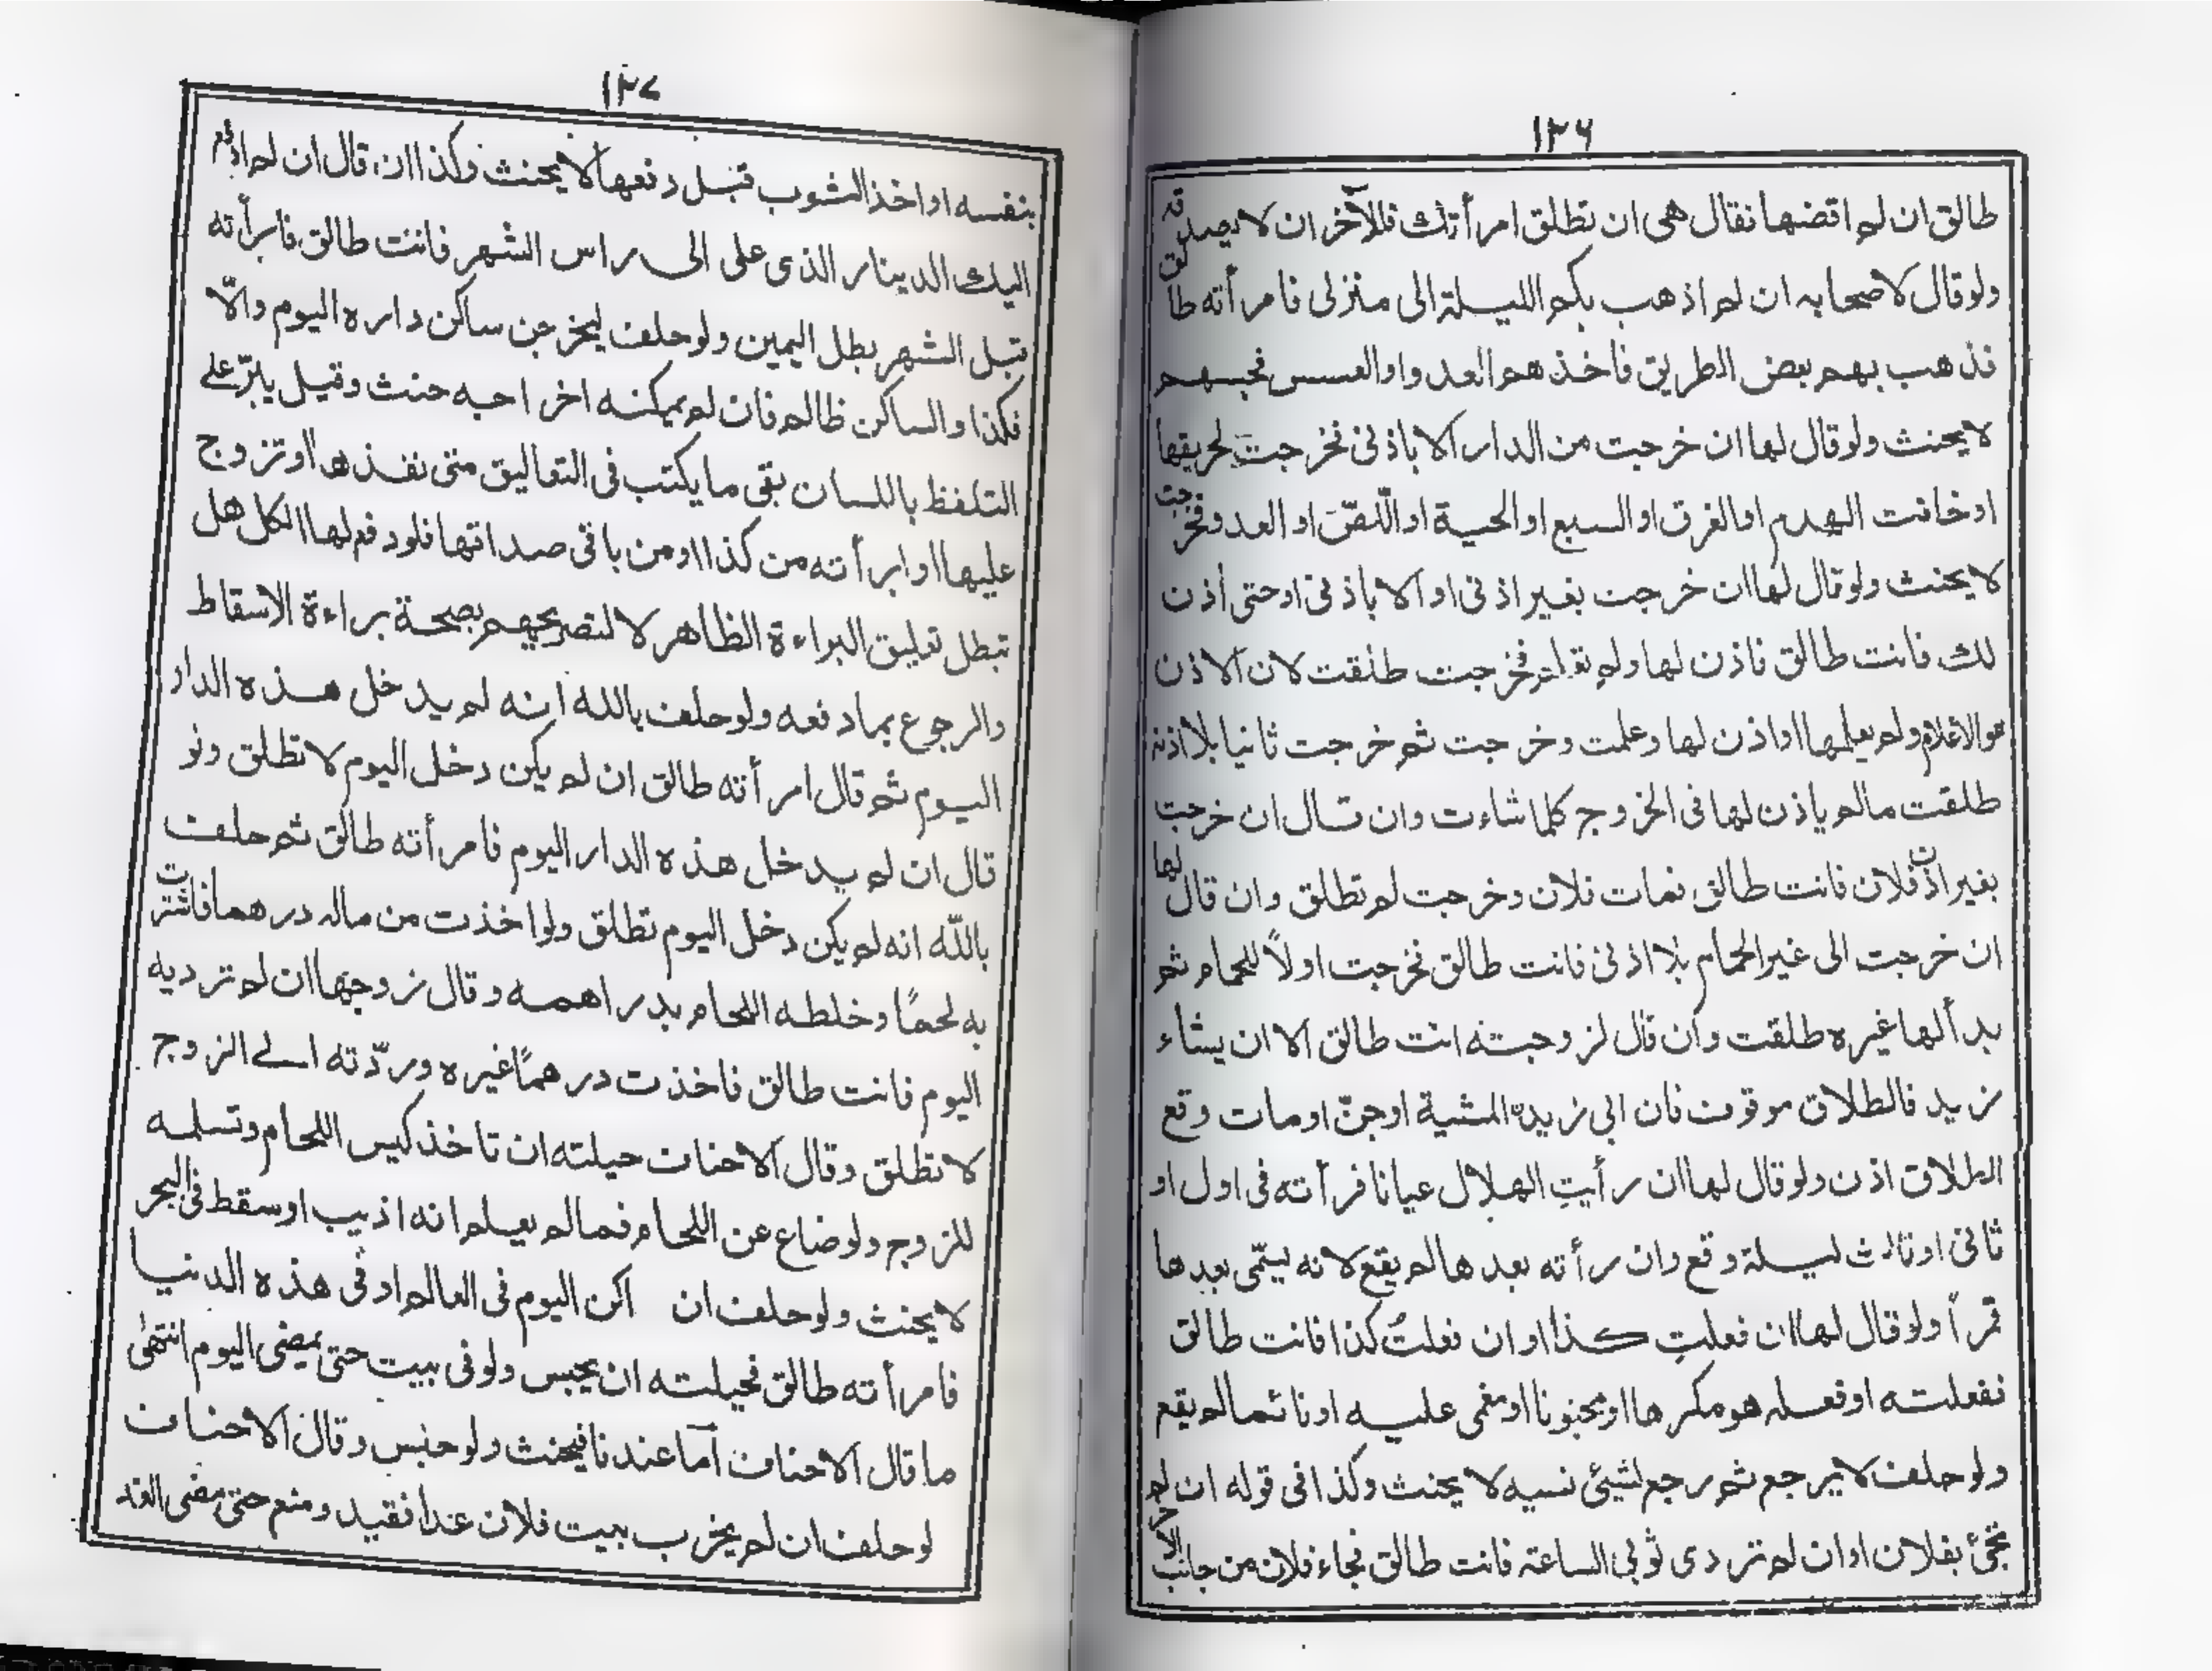 ١٣٦
طالق ان لم اقضها فقال هى ان تطلق امرأتك فللآخر ان لا يصدقه
ولو قال لاصحابه ان لم اذهب بكم الليلة الى منزلى فامرأته طالق
فذهب بهم بعض الطريق فأخذهم العدو او العسس فحبسهم
لا يحنث ولو قال لها ان خرجت من الدار الا باذنى فخرجت لحريقها
اوخافت الهدم او الغرق او السبع او الحية او اللّصّ او العدو فخرجت
لا يحنث ولو قال لها ان خرجت بغير اذنى او الا باذنى اوحتى أذن
لك فانت طالق فاذن لها ولم تعلم فخرجت طلقت لان الاذن
هو الاعلام ولم يعلمها اواذن لها وعلمت وخرجت ثم خرجت ثانيا بلا اذنه
طلقت مالم ياذن لها فى الخروج كلما شاءت وان قال ان خرجت
بغير اذن فلان فانت طالق فمات فلان وخرجت لم تطلق وان قال لها
ان خرجت الى غير الحمام بلا اذنى فانت طالق فخرجت اولاً للحمام ثم
بدألها غيره طلقت وان قال لزوجته انت طالق الا ان يشاء
زيد فالطلاق موقوف فان ابى زيد المشية اوجنّ اومات وقع
الطلاق اذن ولو قال لها ان رأيتِ الهلال عيانا فرأته فى اول او
ثانى اوثالث ليلة وقع وان رأته بعدها لم يقع لانه يسمّى بعدها
قمراً ولو قال لها ان فعلتِ كذا او ان فعلتُ كذا فانت طالق
ففعلته اوفعله هو مكرها او مجنونا او مغمى عليه اونائما لم يقع
ولو حلف لا يرجع ثم رجع لشيئ نسيه لا يحنث وكذا فى قوله ان لم
تجئ بفلان اوان لم تردى ثوبى الساعة فانت طالق فجاء فلان من جانب آخر
١٣٧
بنفسه او اخذ الثوب قبل دفعها لا يحنث وكذا ان قال ان لم ادفع
اليك الدينار الذى على الى راس الشهر فانت طالق فابرأته
قبل الشهر بطل اليمين ولو حلف ليخرجن ساكن داره اليوم والّا
فكذا والساكن ظالم فان لم يمكنه اخراجه حنث وقيل يلزم على
التلفظ باللسان بقى ما يكتب فى التعاليق متى نفذها اوتزوج
عليها او ابرأته من كذا او من باقى صداقها فلو دفع لها الكل هل
تبطل تعليق البراءة الظاهر لا لتصريحهم بصحة براءة الاسقاط
والرجوع بما دفعه ولو حلف بالله انه لم يدخل هذه الدار
اليوم ثم قال امرأته طالق ان لم يكن دخل اليوم لا تطلق ولو
قال ان لم يدخل هذه الدار اليوم فامرأته طالق ثم حلف
باللّه انه لم يكن دخل اليوم تطلق ولو اخذت من ماله درهما فاشترت
به لحمًا وخلطه اللحام بدراهمه وقال زوجها ان لم ترديه
اليوم فانت طالق فاخذت درهمًا غيره وردّته الى الزوج
لا تطلق وقال الاحناف حيلته ان تاخذ كيس اللحام وتسلمه
للزوج ولو ضاع عن اللحام فما لم يعلم انه اذيب او سقط فى البحر
لا يحنث ولو حلف ان اكن اليوم فى العالم او فى هذه الدنيا
فامرأته طالق فحيلته ان يحبس ولو فى بيت حتى يمضى اليوم انتهى
ما قال الاحناف امّا عندنا فيحنث ولو حبس وقال الاحناف
لو حلف ان لم يخرب بيت فلان غدا فقيد ومنع حتى مضى الغد